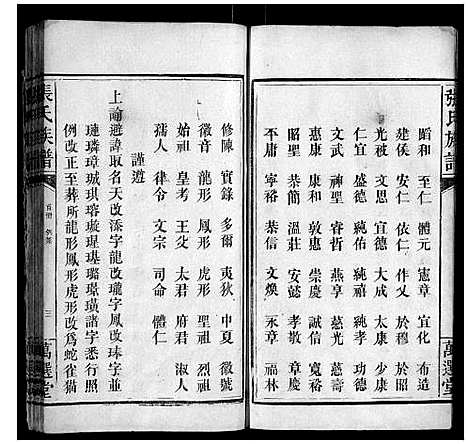 張氏族譜
萬選堂
蹈和 至仁 體元 憲章 宣化 布造
建侯 安仁 依仁 作乂 於穆 於昭
光被 文思 宣德 大成 太康 少康
仁宜 盛德 純佑 大本 純孝 功德
文武 神聖 睿哲 燕享 慈光 慈壽
惠康 康和 敦惠 崇慶 誠信 寬裕
昭聖 恭簡 溫莊 安懿 孝敬 章慶
不庸 寧裕 恭信 文煥 永貞 福林
修陳 實錄 多爾 夷狄 中夏 徽號
徽音 龍形 鳳形 虎形 聖祖 烈祖
始祖 皇考 王父 太君 府君 淑人
孺人 律令 文宗 司命 體仁
謹遵
上諭避諱取名天改添字龍改瓏字鳳改琫字並
璉璘璋珹琪瑢璇琨基璐璂璜諸字悉行照
例改正至葬所龍形鳳形虎形改為蛇雀猫
張氏族譜
首冊
三
萬選堂